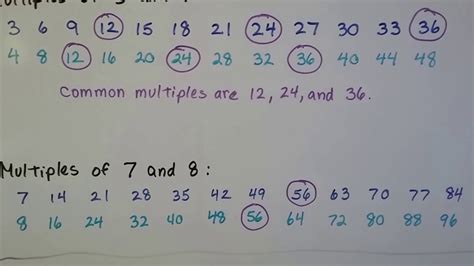 3 6 9 12 15 18 21 24 27 30 33 36
4 8 12 16 20 24 28 32 36 40 44 48
Common multiples are 12, 24, and 36.
Multiples of 7 and 8:
7 14 21 28 35 42 49 56 63 70 77 84
8 16 24 32 40 48 56 64 72 80 88 96